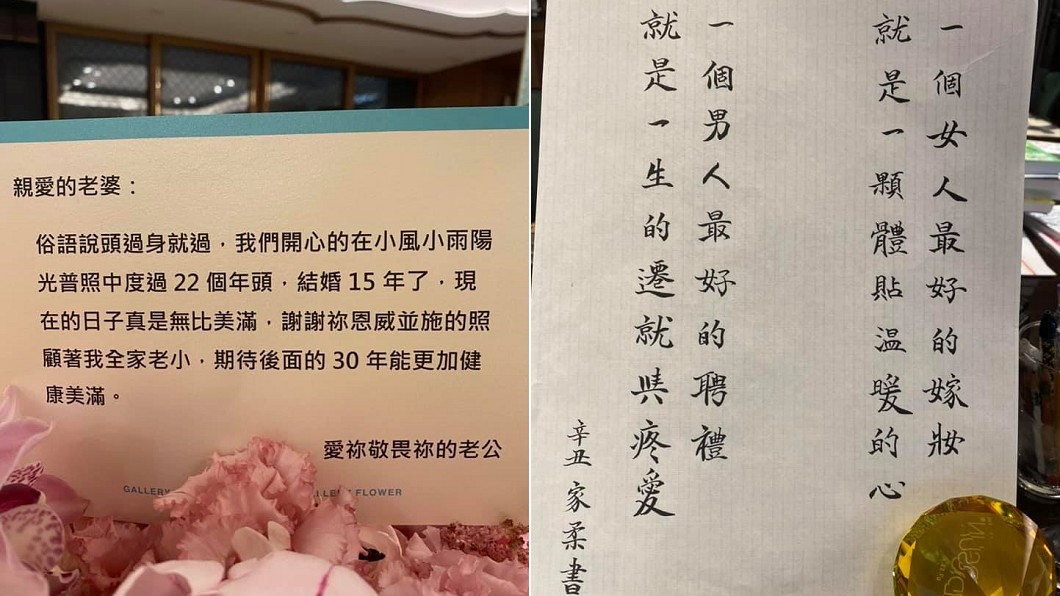 親愛的老婆：
俗語說頭過身就過，我們開心的在小風小雨陽
光普照中度過 22 個年頭，結婚 15 年了，現
在的日子真是無比美滿，謝謝祢恩威並施的照
顧著我全家老小，期待後面的 30 年能更加健
康美滿。
愛祢敬畏祢的老公
GALLERY
FLOWER
一個女人最好的嫁妝
就是一顆體貼温暖的心
一個男人最好的聘禮
就是一生的遷就與疼愛
辛丑家柔書